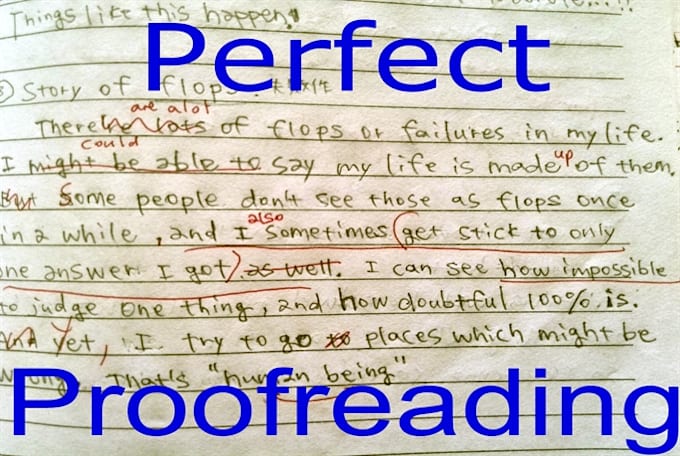 Things like this happen!
Perfect
Story of flops.
are a lot
There lots of flops or failures in my life.
could
I might be able to say my life is made up of them.
But Some people don't see those as flops once
also
in a while, and I sometimes (get stick to only
one answer I got) as well. I can see how impossible
to judge one thing, and how doubtful 100% is.
And yet, I try to go to places which might be
That's "human being"
Proofreading